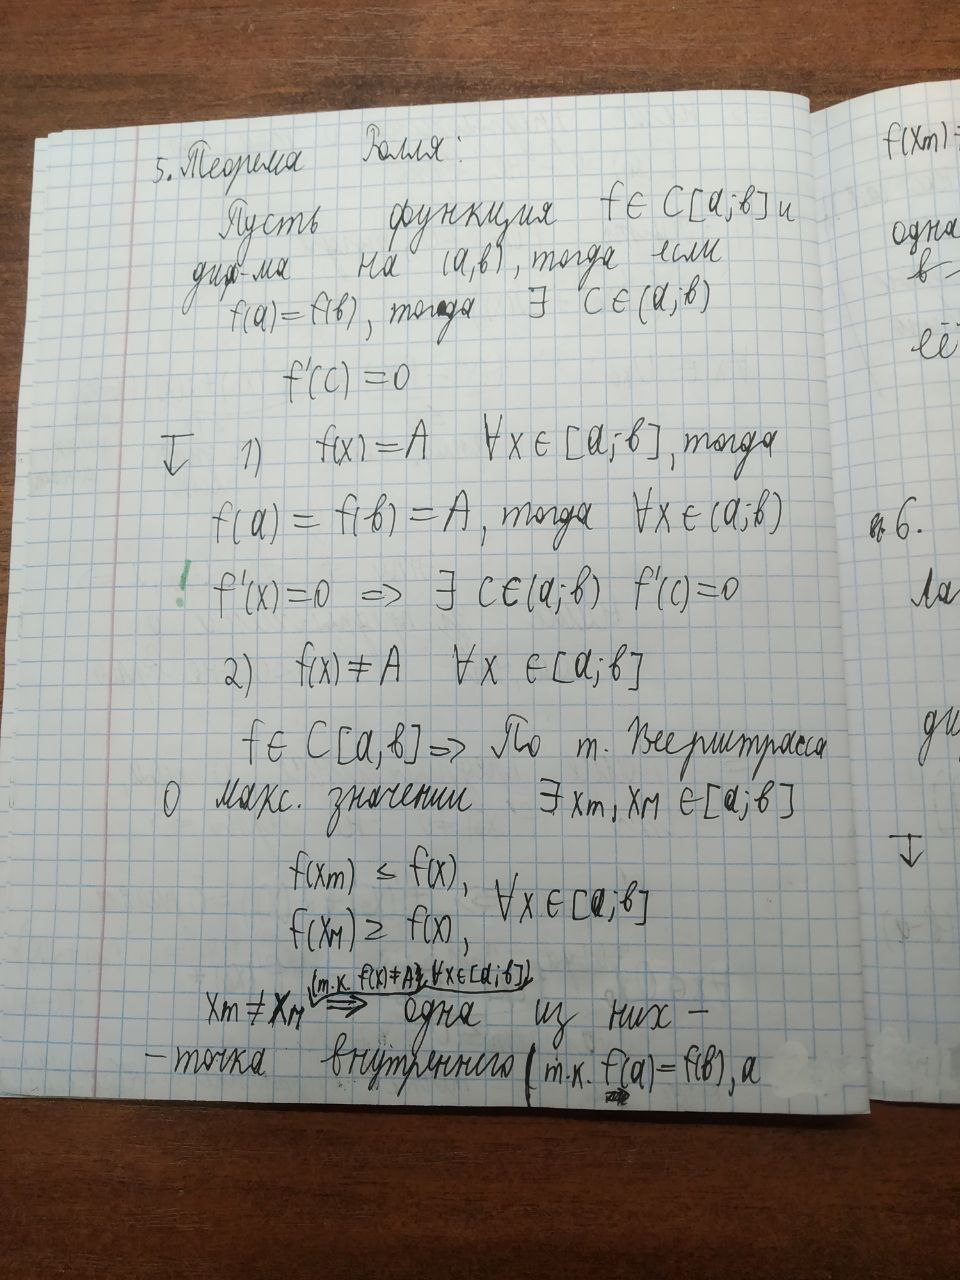 5. Теорема Ролля:
Пусть функция f ∈ C[a;в] и
диф-ма на (a,в), тогда если
f(a) = f(в), тогда ∃ C ∈ (a;в)
f'(c) = 0
1) f(x) = A ∀x ∈ [a;в], тогда
f(a) = f(в) = A, тогда ∀x ∈ (a;в)
! f'(x) = 0 => ∃ C ∈ (a;в) f'(c) = 0
2) f(x) ≠ A ∀x ∈ [a;в]
f ∈ C[a,в] => По т. Веерштрасса
О макс. значении ∃ xm, xM ∈ [a;в]
f(xm) ≤ f(x),
f(xM) ≥ f(x), ∀x ∈ [a;в]
(т.к. f(x) ≠ A, ∀x ∈ [a;в])
xm ≠ xM => одна из них –
– точка внутреннего (т.к. f(a) = f(в), а
f(xm) =
одна
в –
её
6.
Ла
ди